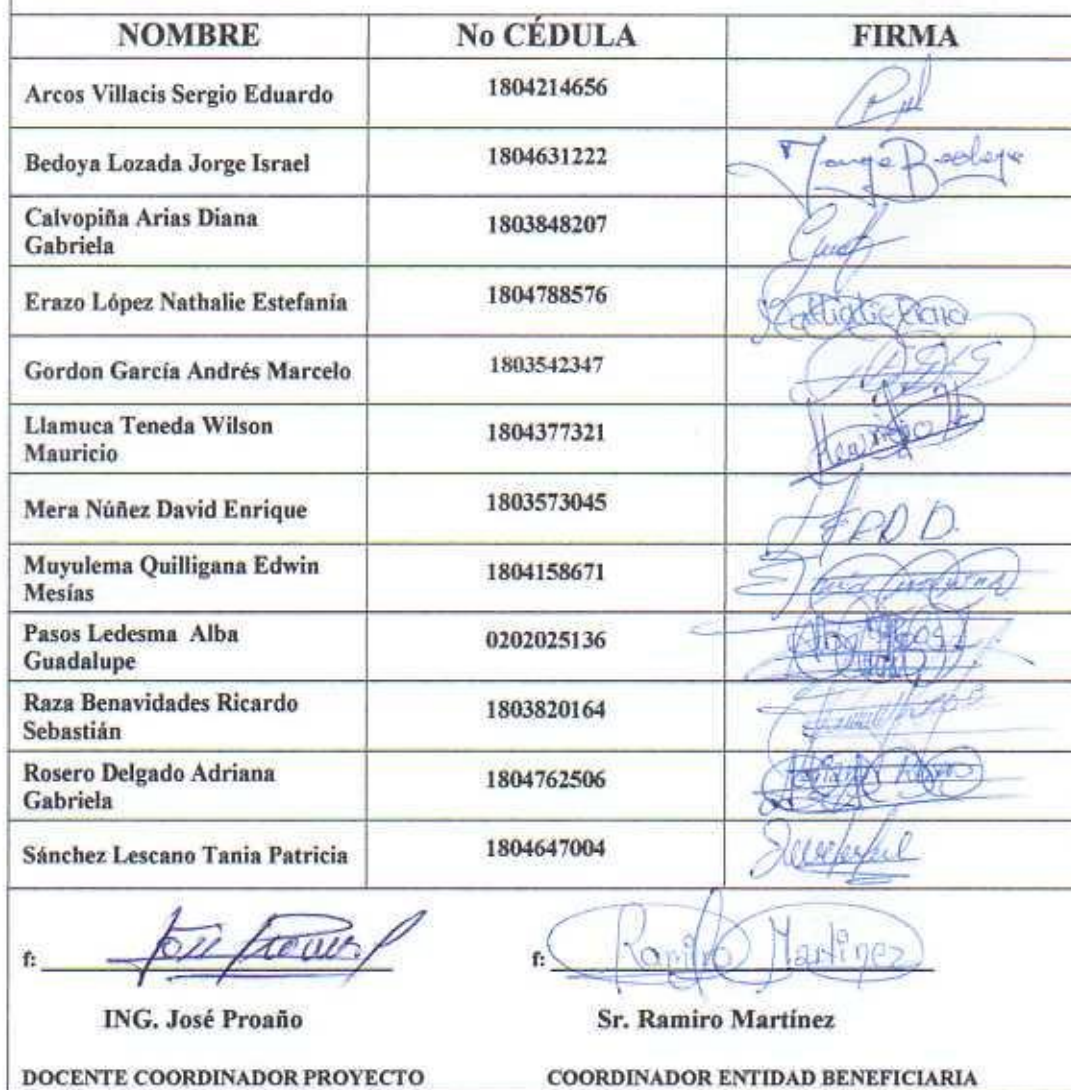 NOMBRE No CÉDULA FIRMA
Arcos Villacis Sergio Eduardo 1804214656
Bedoya Lozada Jorge Israel 1804631222 Jorge Bedoya
Calvopiña Arias Diana
Gabriela 1803848207
Erazo López Nathalie Estefanía 1804788576
Gordon García Andrés Marcelo 1803542347
Llamuca Teneda Wilson
Mauricio 1804377321
Mera Núñez David Enrique 1803573045
Muyulema Quilligana Edwin
Mesías 1804158671
Pasos Ledesma Alba
Guadalupe 0202025136
Raza Benavidades Ricardo
Sebastián 1803820164
Rosero Delgado Adriana
Gabriela 1804762506
Sánchez Lescano Tania Patricia 1804647004
f: f: Ramiro Martinez
ING. José Proaño Sr. Ramiro Martínez
DOCENTE COORDINADOR PROYECTO COORDINADOR ENTIDAD BENEFICIARIA